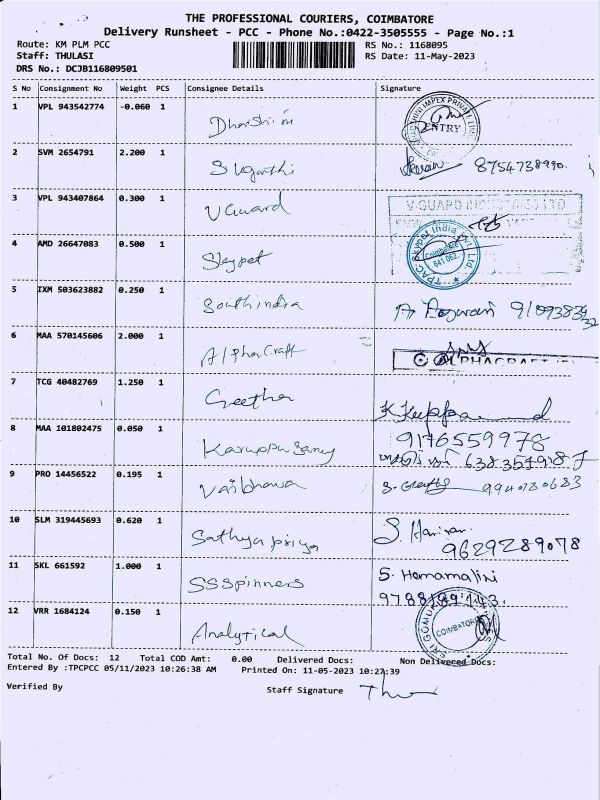 THE PROFESSIONAL COURIERS, COIMBATORE
Delivery Runsheet - PCC - Phone No.:0422-3505555 - Page No.:1
Route: KM PLM PCC RS No.: 1168095
Staff: THULASI RS Date: 11-May-2023
DRS No.: DCJB116809501
S No Consignment No Weight PCS Consignee Details Signature
1 VPL 943542774 -0.060 1 Dharshini ENTRY
2 SVM 2654791 2.200 1 8754738990.
3 VPL 943407864 0.300 1 V Guard V-GUARD
4 AMD 26647083 0.500 1 Skypet Coimbatore 641 062.
5 IXM 503623882 0.250 1 South indra
6 MAA 570145606 2.000 1 Alpha Craft
7 TCG 40482769 1.250 1 Geetha
8 MAA 101802475 0.050 1 Karuppusamy 9176559978
9 PRO 14456522 0.195 1 Vaibhava
10 SLM 319445693 0.620 1 Sathyapriya 9629289078
11 SKL 661592 1.000 1 SS Spinners S. Hemamalini
12 VRR 1684124 0.150 1 Analytical COIMBATORE
Total No. Of Docs: 12 Total COD Amt: 0.00 Delivered Docs: Non Delivered Docs:
Entered By :TPCPCC 05/11/2023 10:26:38 AM Printed On: 11-05-2023 10:27:39
Verified By Staff Signature